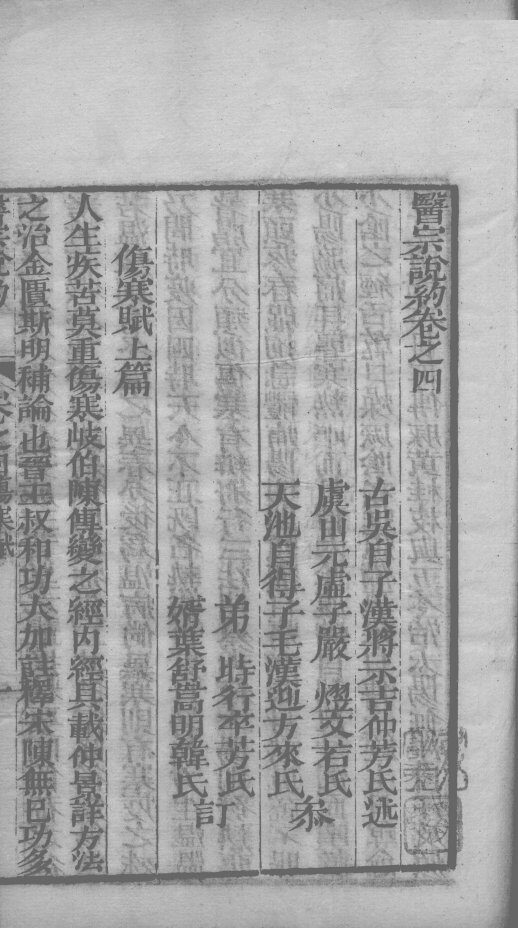 醫宗說約卷之四
古吳自了漢蔣示吉仲芳氏述
虞山元虛子嚴 熤文若氏
天池自得子毛漢迎方來氏 叅
弟 時行平芳氏
婿葉舒嵩明韓氏 訂
傷寒賦上篇
人生疾苦莫重傷寒岐伯陳傳變之經內經具載仲景詳方法
之治金匱斯明補論也晉王叔和功大加註釋宋陳無已功多